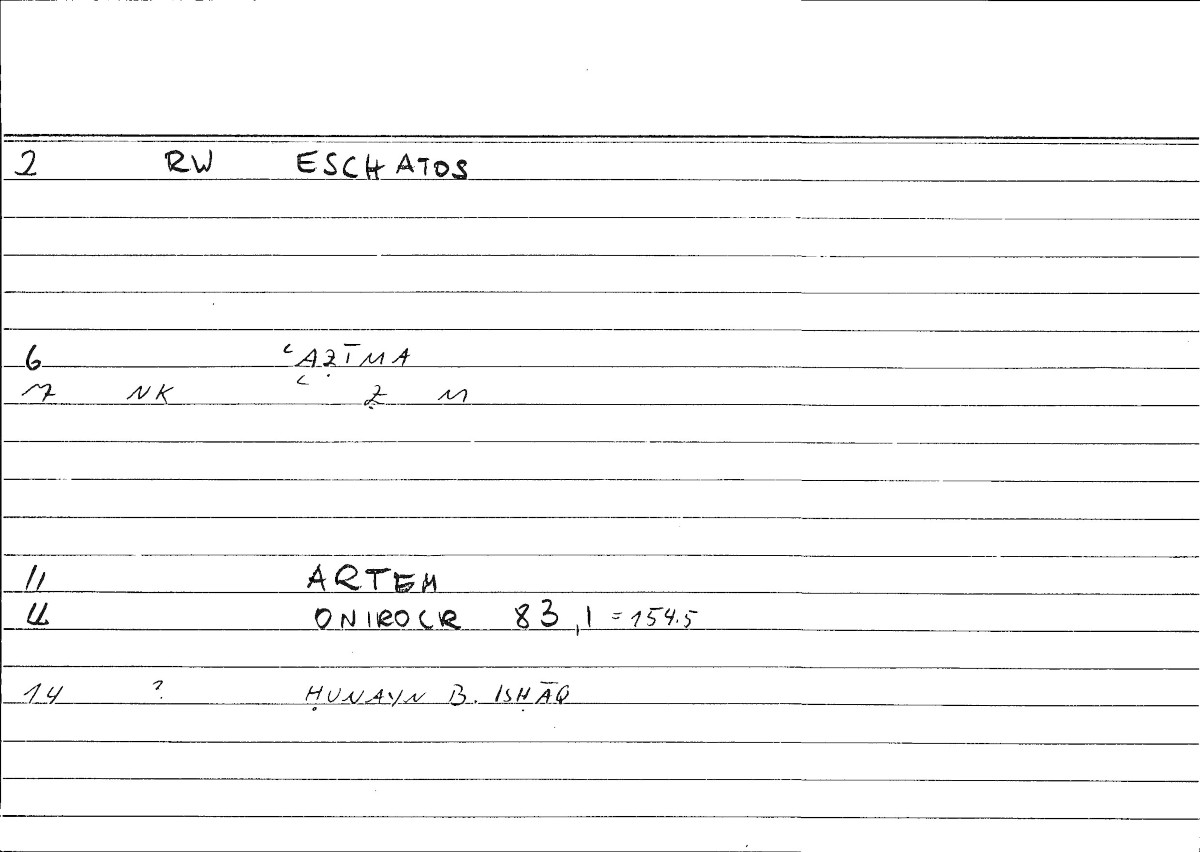 2 RW ESCHATOS
6 ʿAẒĪMA
7 NK ʿ Ẓ M
11 ARTEM
12 ONIROCR 83,1 = 154.5
14 ? ḤUNAYN B. ISḤĀQ